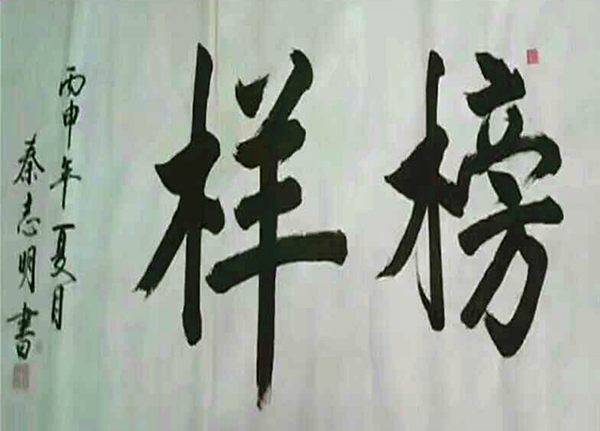 榜样
丙申年夏月
秦志明書